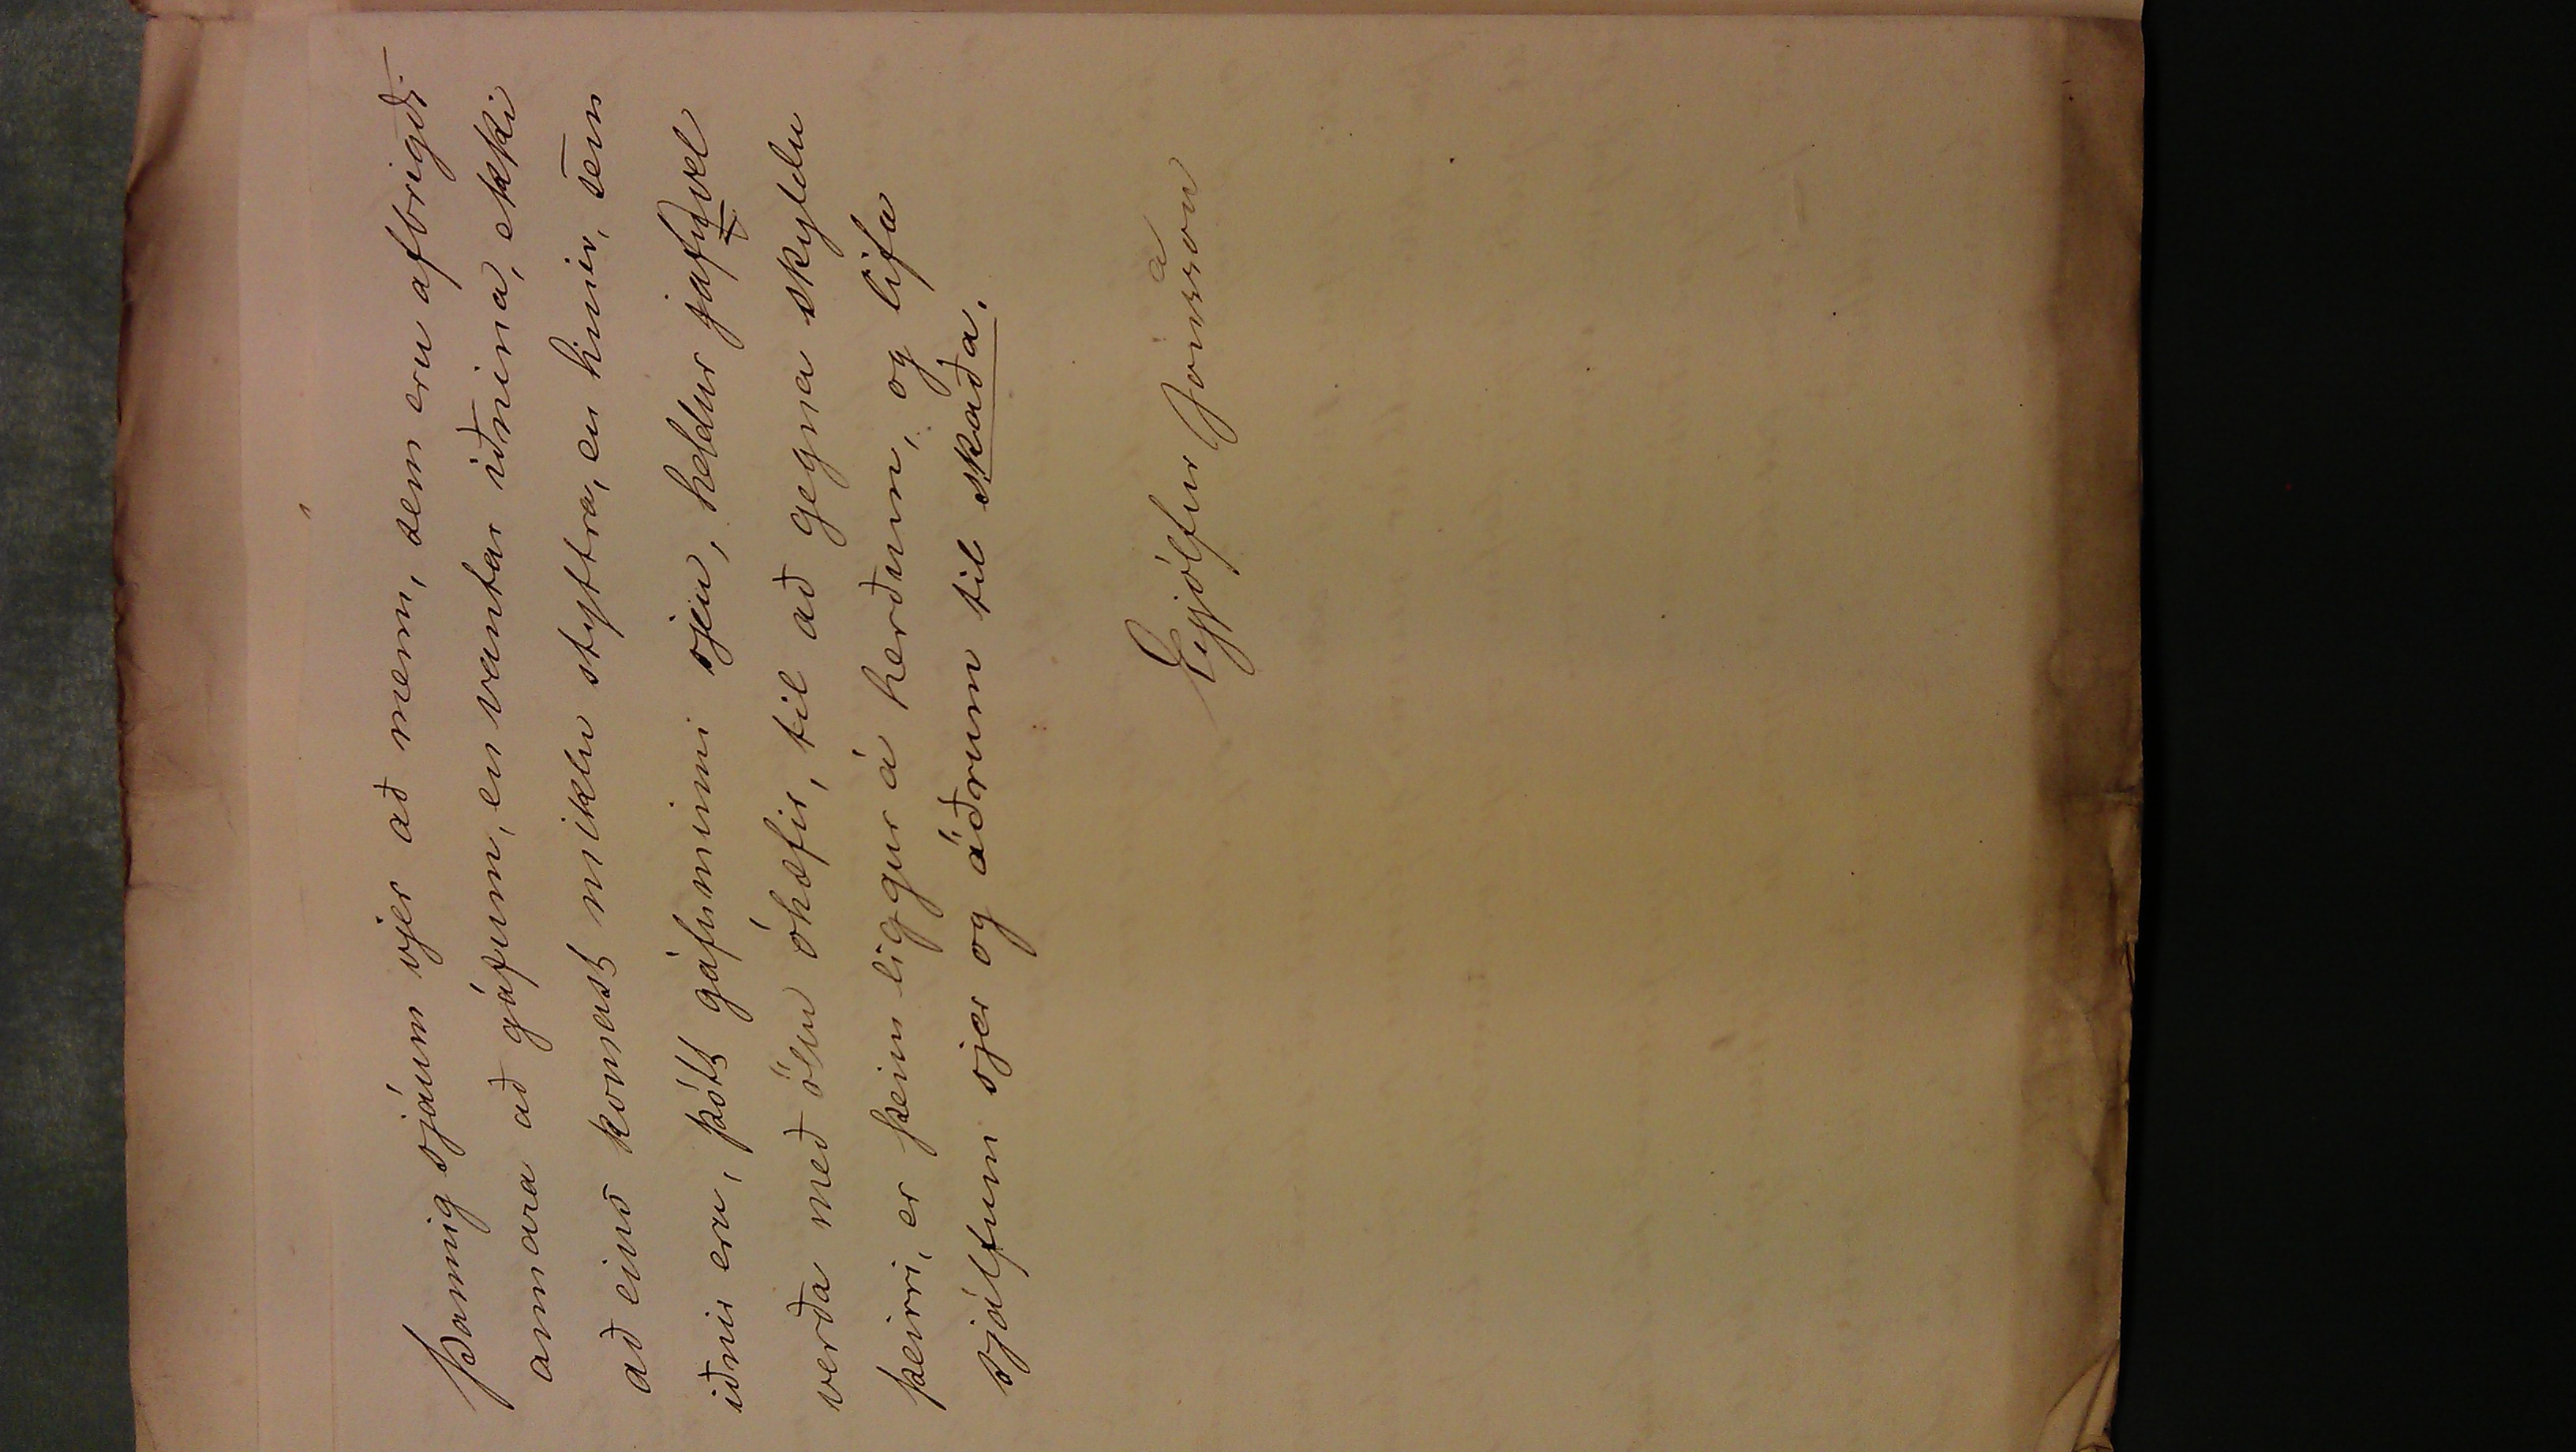 Þannig sjáum vjer að menn, sem eru afbrigði
annara að gáfum, en vantar iðnina, ekki
að eins komast miklu styttra, en hinir, sem
iðnir eru, þótt gáfuminni sjeu, heldur jafnvel
verða með öllu óhæfir, til að gegna skyldu
þeirri, er þeim liggur á herðum, og lifa
sjálfum sjer og áðrum til skaða.
Eyjólfur Jónsson